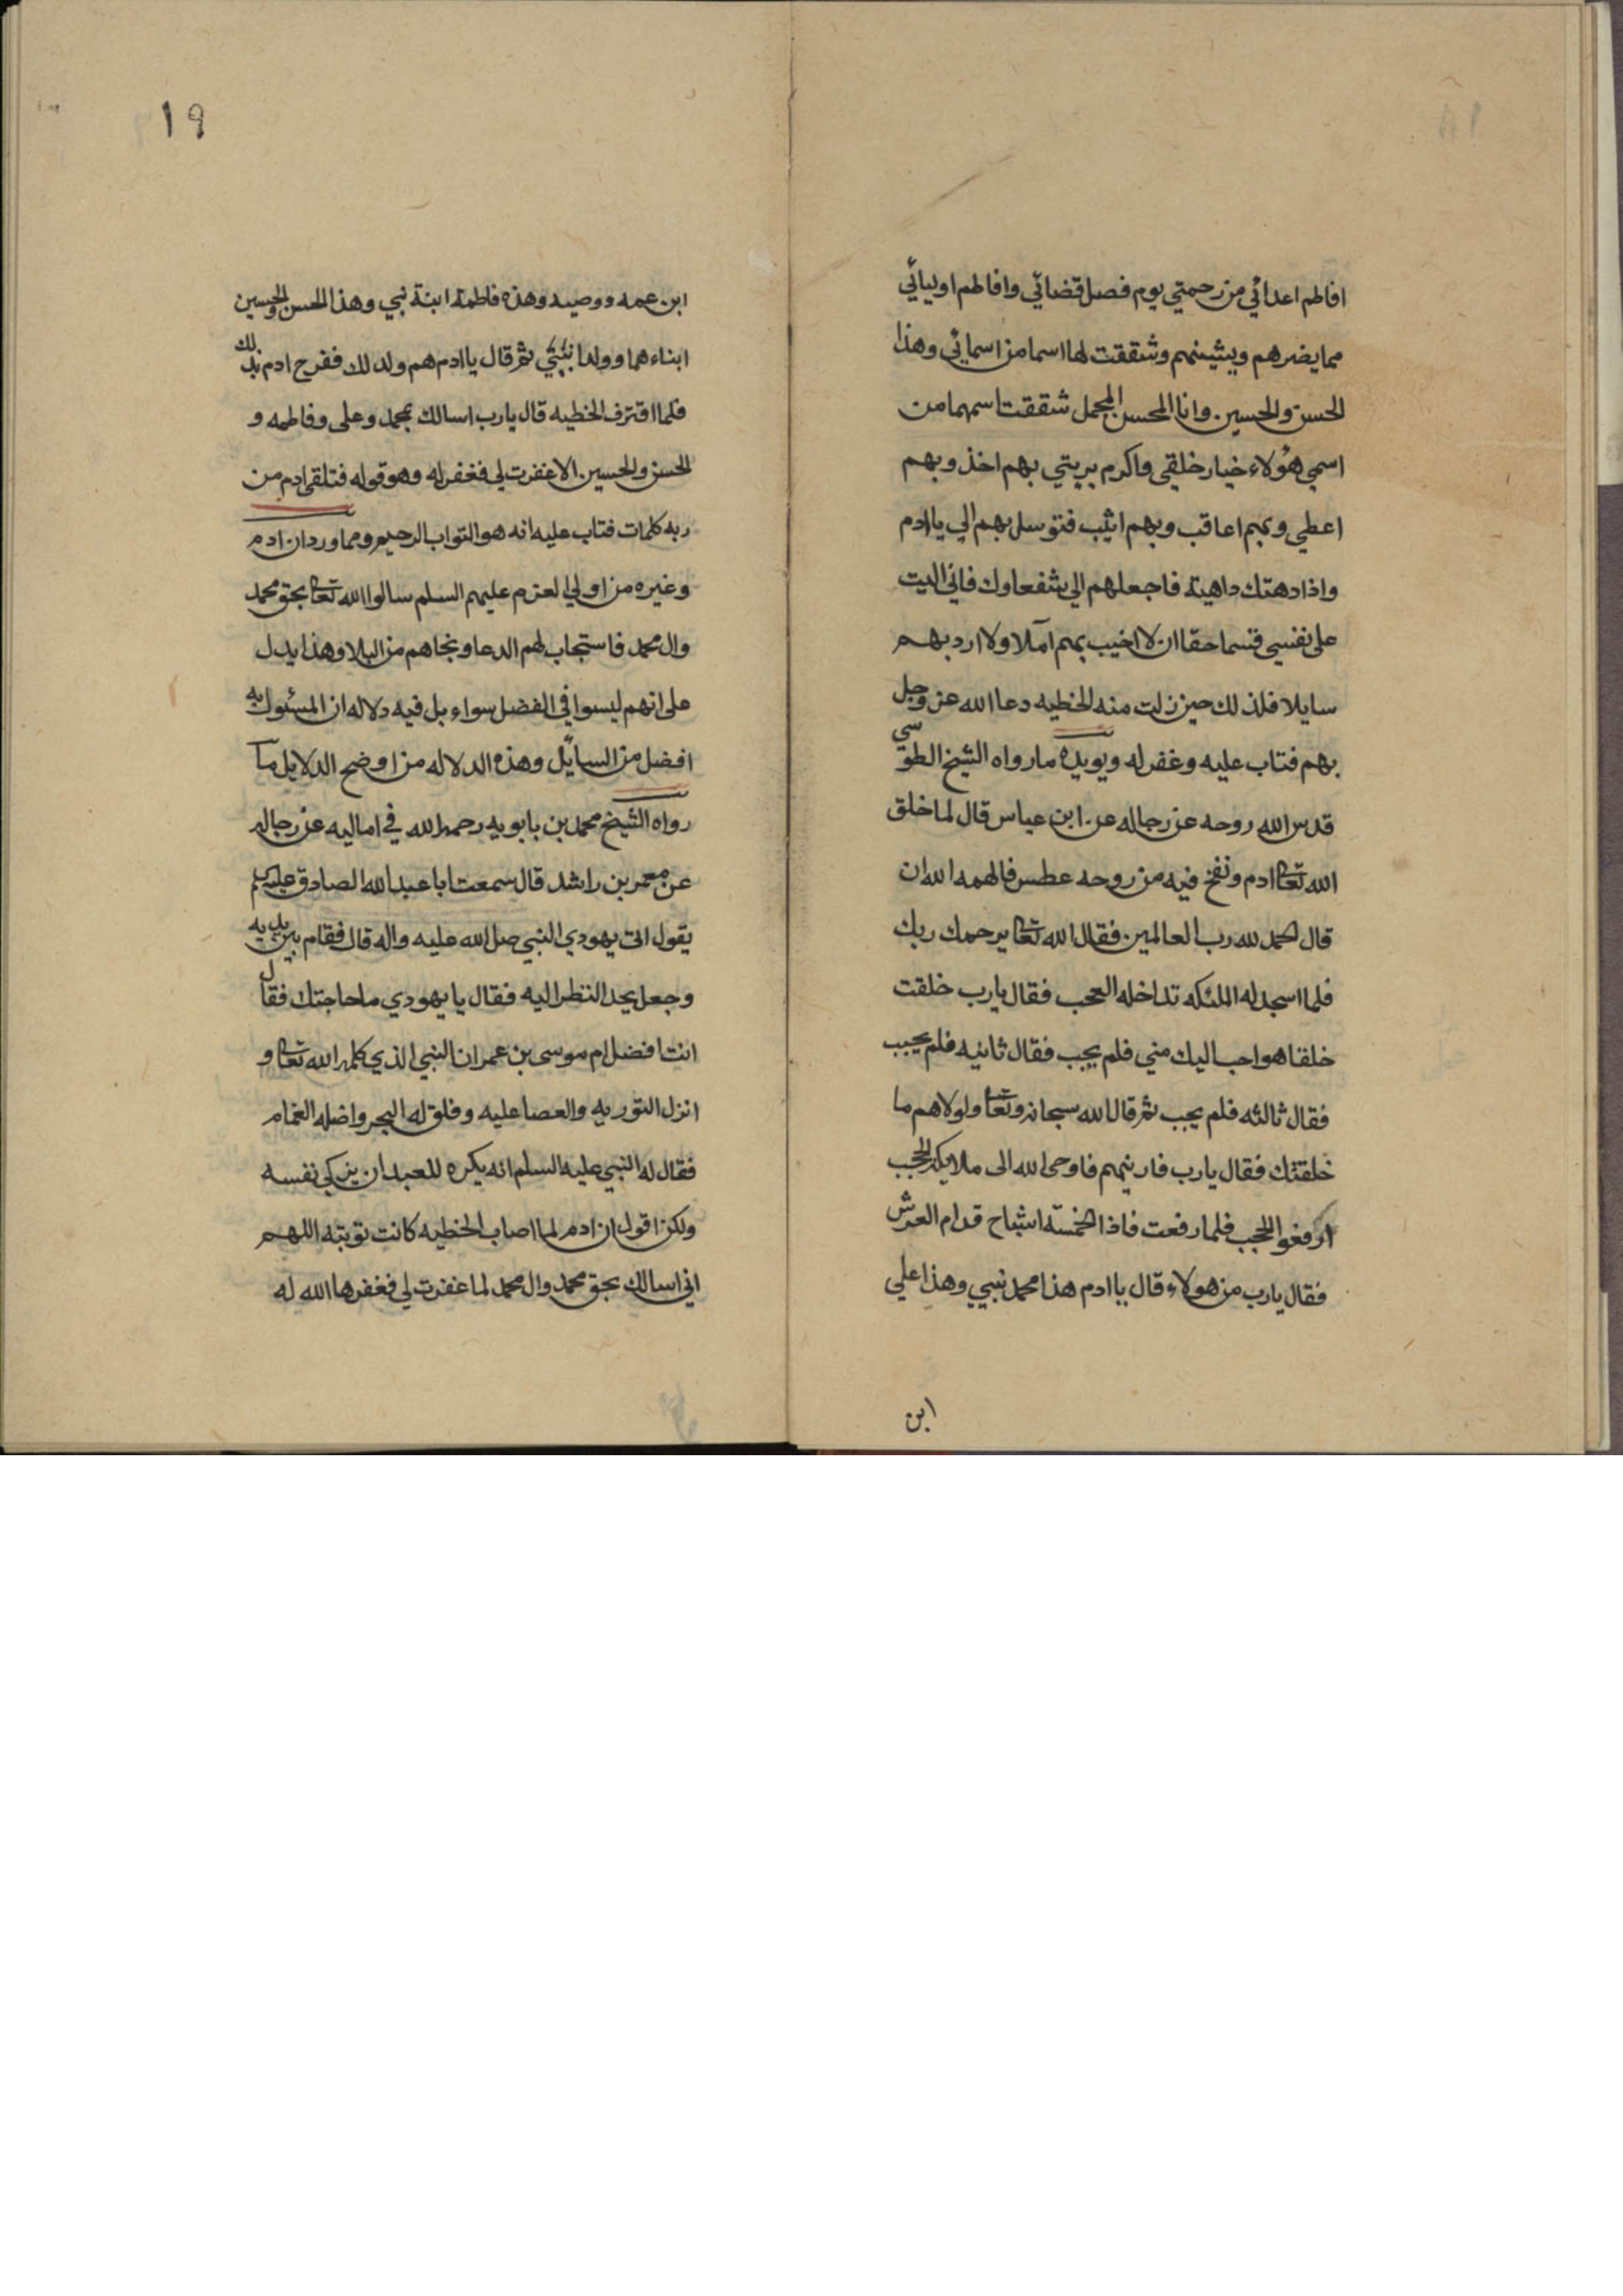 افاطم اعدائي من رحمتي يوم فصل قضائي وافاطم اوليائي
مما يضرهم ويشينهم وشققت لها اسما من اسمائي وهذا
الحسن والحسين وانا المحسن المجمل شققت اسمهما من
اسمي هؤلاء خيار خلقي واكرم بريتي بهم اخذ وبهم
اعطي وبهم اعاقب وبهم اثيب فتوسل بهم الي يا ادم
واذا دهتك داهية فاجعلهم الي شفعاوك فاني اليت
على نفسي قسما حقا ان لا اخيب بهم آملا ولا ارد بهم
سايلا فلذلك حين زلت منه الخطيه دعا الله عز وجل
بهم فتاب عليه وغفر له ويويده ما رواه الشيخ الطوسي
قدس الله روحه عن رجاله عن ابن عباس قال لما خلق
الله تعا ادم ونفخ فيه من روحه عطس فالهمه الله ان
قال الحمد لله رب العالمين فقال الله تعا يرحمك ربك
فلما اسجد له الملئكه تداخله العجب فقال يارب خلقت
خلقا هو احب اليك مني فلم يجب فقال ثانيه فلم يجب
فقال ثالثه فلم يجب ثم قال الله سبحانه وتعا ولولاهم ما
خلقتك فقال يارب فارينهم فاوحى الله الى ملايكه الحجب
ارفعوا الحجب فلما رفعت فاذا خمسة اشباح قدام العرش
فقال يارب من هولاء قال يا ادم هذا محمد نبيي وهذا علي
ابن
١٩
ابن عمه ووصيه وهذه فاطمة ابنة نبي وهذا الحسن والحسين
ابناءهما وولدا نبيي ثم قال يا ادم هم ولد لك ففرح ادم بذلك
فلما اقترف الخطيه قال يارب اسالك بمحمد وعلى وفاطمه و
الحسن والحسين الا غفرت لي فغفر له وهو قوله فتلقى ادم من
ربه كلمات فتاب عليه انه هو التواب الرحيم ومما ورد ان ادم
وغيره من اولي العزم عليهم السلم سالوا الله تعا بحق محمد
وال محمد فاستجاب لهم الدعا ونجاهم من البلا وهذا يدل
على انهم ليسوا في الفضل سواء بل فيه دلاله ان المسئول به
افضل من السايل وهذه الدلاله من اوضح الدلايل ما
رواه الشيخ محمد بن بابويه رحمه الله في اماليه عن رجاله
عن معمر بن راشد قال سمعت ابا عبد الله الصادق عليه السلم
يقول اتى يهودي النبي صلى الله عليه واله قال فقام بين يديه
وجعل يحد النظر اليه فقال يا يهودي ما حاجتك فقال
انت افضل ام موسى بن عمران النبي الذي كلمه الله تعا و
انزل التوريه والعصا عليه وفلق له البحر واضله الغمام
فقال له النبي عليه السلم انه يكره للعبد ان يزكي نفسه
ولكن اقول ان ادم لما اصاب الخطيه كانت توبته اللهم
اني اسالك بحق محمد وال محمد لما غفرت لي فغفرها الله له